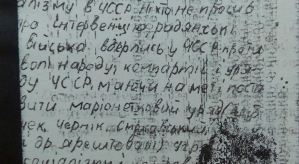 алізму в ЧССР. Ніхто не просив
про інтервенцію радянські
війська вдерлись у ЧССР проти
волі народу компартії і уря-
ду ЧССР, маючи на меті поста
вити маріонетковий уряд
чек, Чернік, Смрковський
і др. арештовані